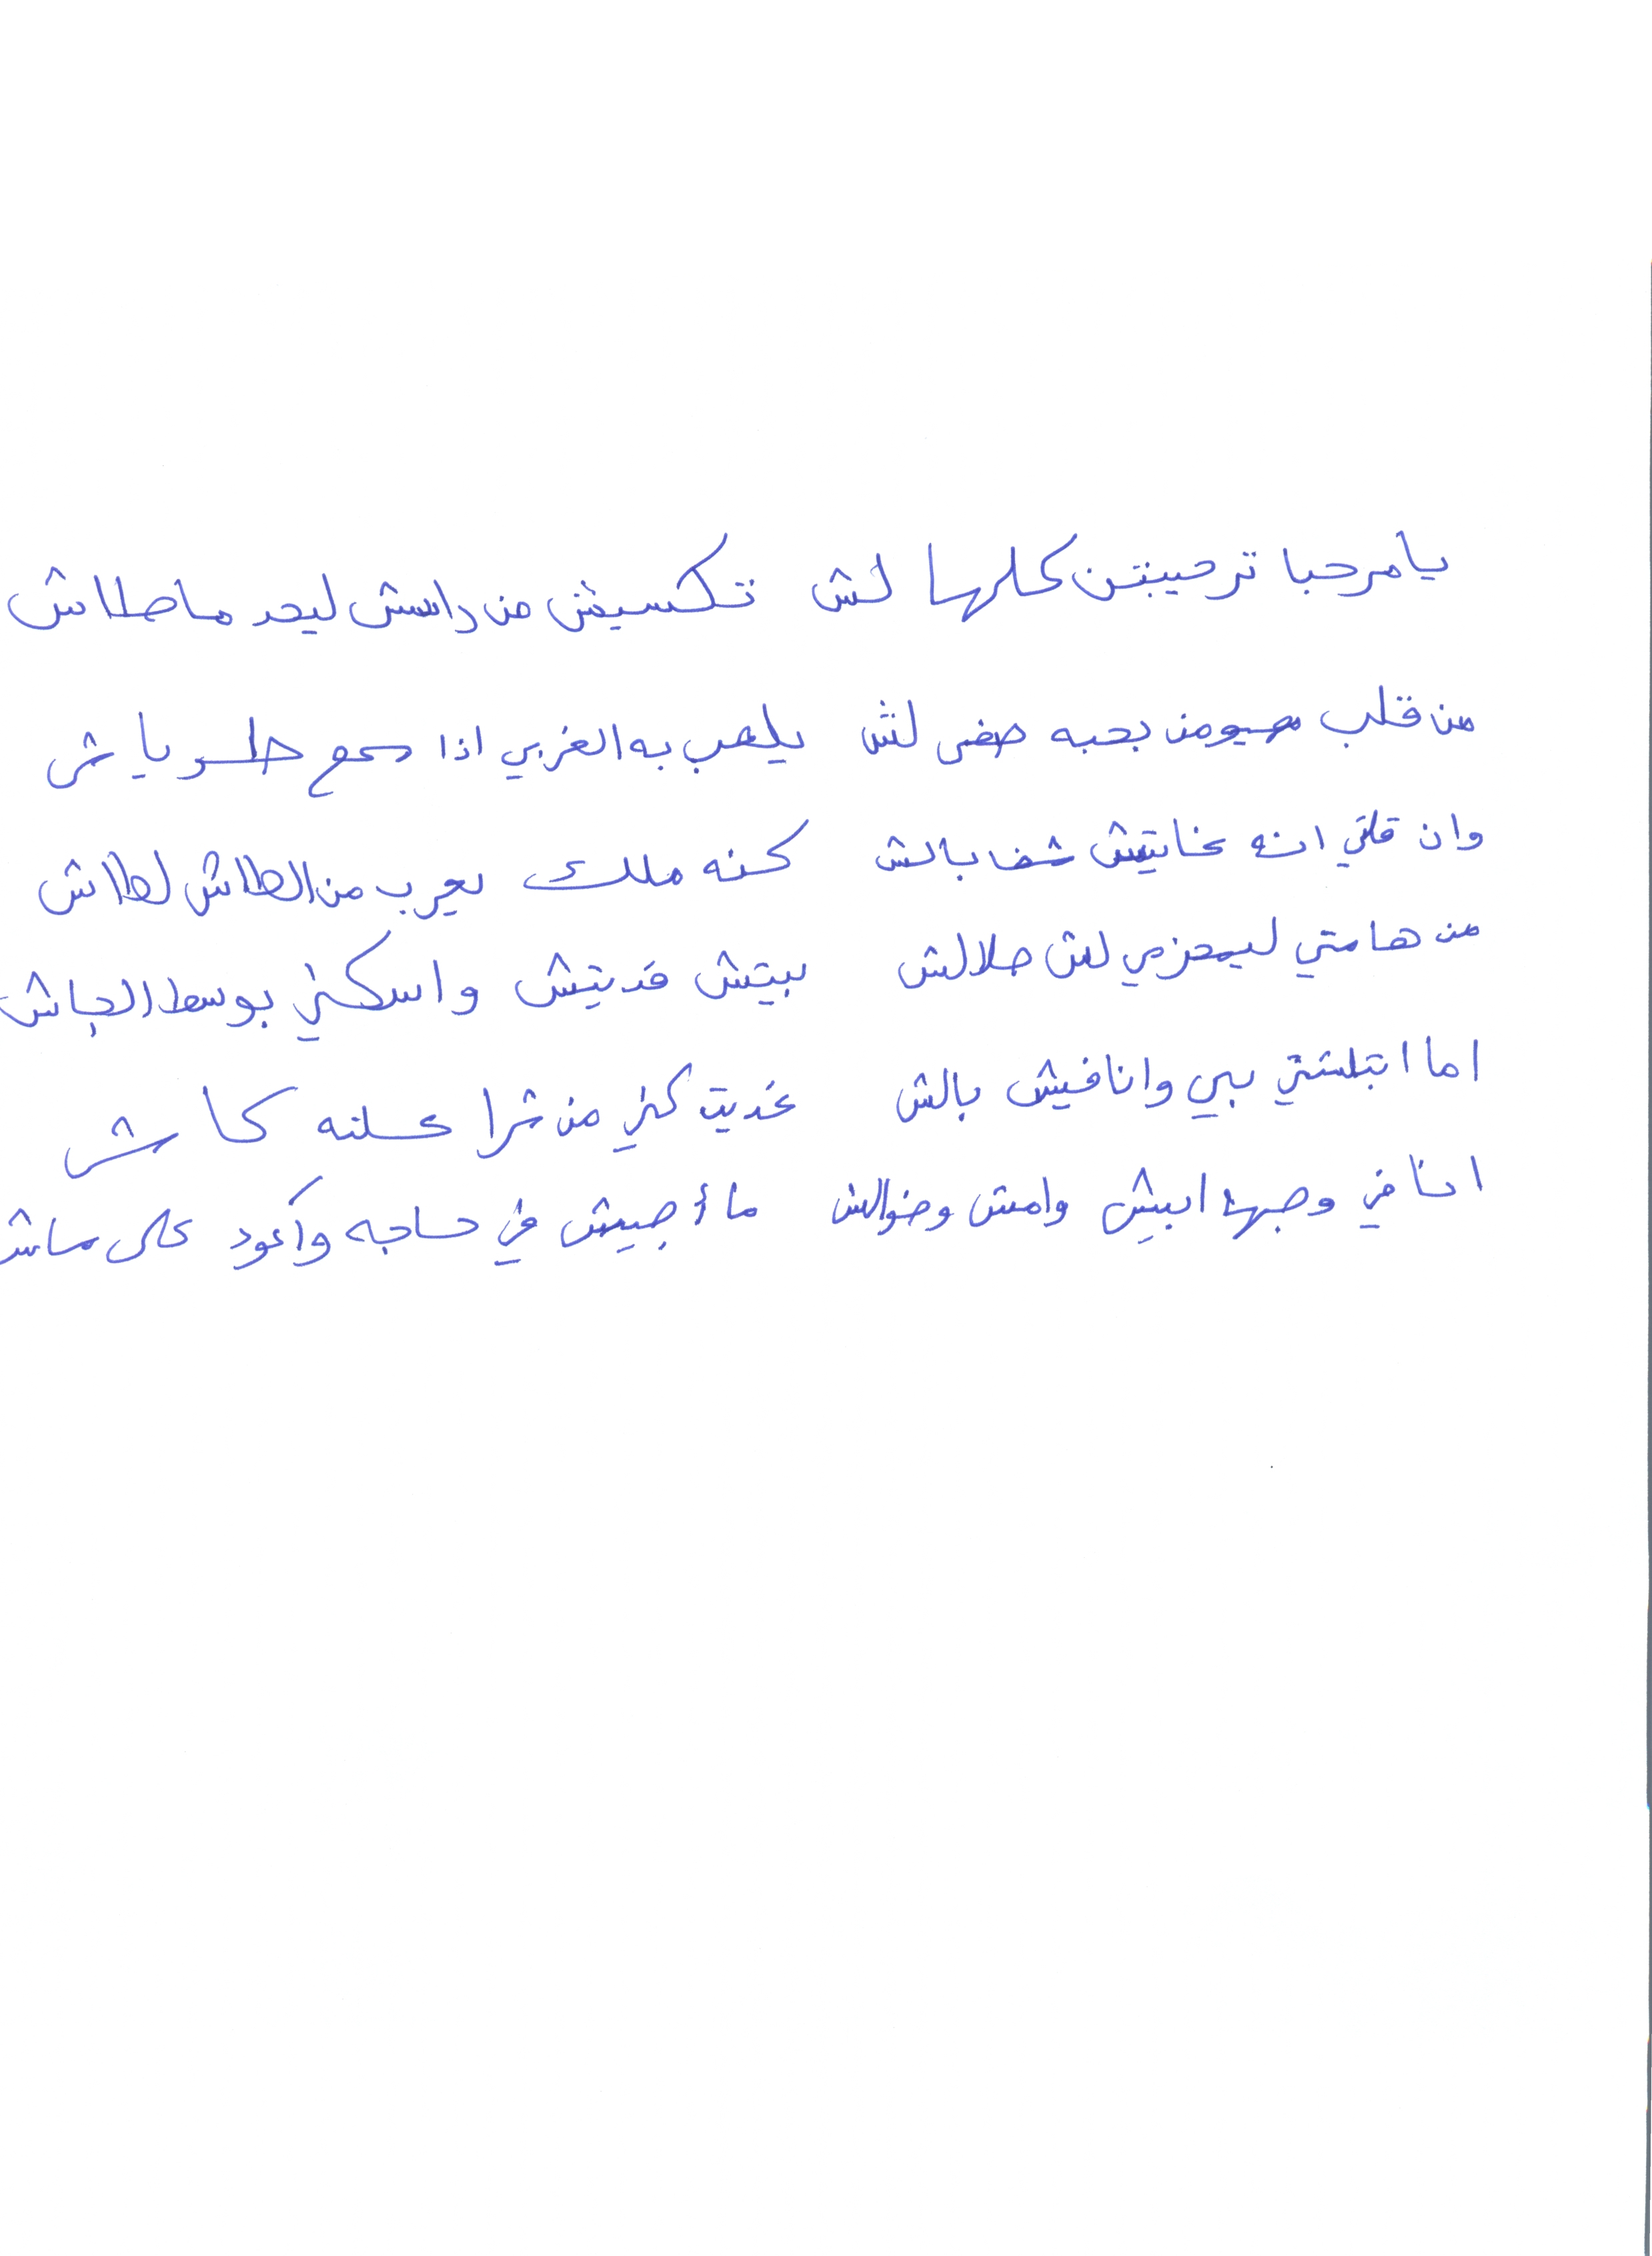 يا مرحبا ترحيبتن كلها لش تكسيش من راسش ليحد ماطاش
من قلب ميومن بحبه صفى لش يلعب به الغربي اذا سمع طرياش
وان قلتي انه غايتش شفا بالش كنه ملك يعرب من الطاش لطاش
من هامتي ليحزمي لش حلالش بيتش فديتش واسكني بوسط الجاش
اما ابتلشتي بي وانا فيش بالش غديت كني من شرا علته كاش
انا في وجه ابيش وامش وخوالش ما أجيش في حاجه وأعود على ماش